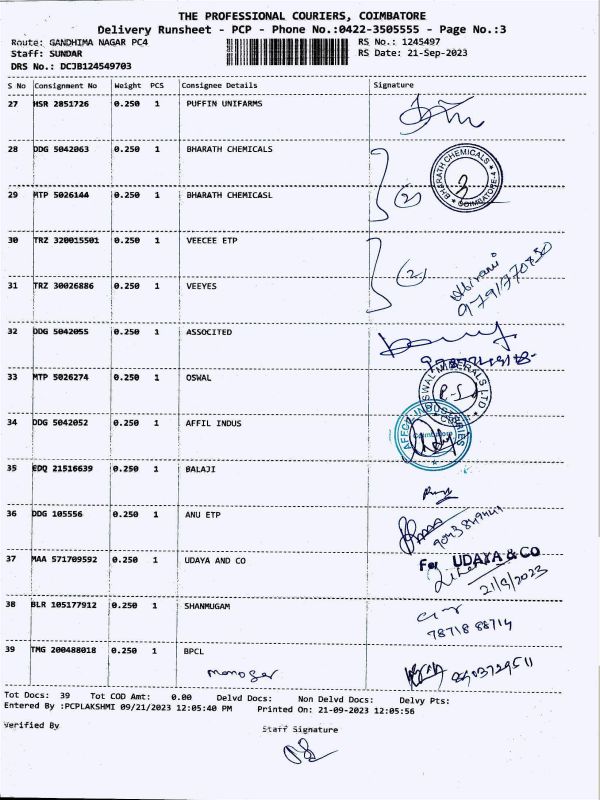 THE PROFESSIONAL COURIERS, COIMBATORE
Delivery Runsheet - PCP - Phone No.:0422-3505555 - Page No.:3
Route: GANDHIMA NAGAR PC4 RS No.: 1245497
Staff: SUNDAR RS Date: 21-Sep-2023
DRS No.: DCJB124549703
S No Consignment No Weight PCS Consignee Details Signature
27 HSR 2851726 0.250 1 PUFFIN UNIFARMS
28 DDG 5042063 0.250 1 BHARATH CHEMICALS
BHARATH CHEMICALS
3
COIMBATORE-4
29 MTP 5026144 0.250 1 BHARATH CHEMICASL
(2)
30 TRZ 320015501 0.250 1 VEECEE ETP
(2)
31 TRZ 30026886 0.250 1 VEEYES
9791770830
32 DDG 5042055 0.250 1 ASSOCITED
33 MTP 5026274 0.250 1 OSWAL
OSWAL MINERALS LTD
34 DDG 5042052 0.250 1 AFFIL INDUS
AFFECO INDUSTRIES
Coimbatore
35 EDQ 21516639 0.250 1 BALAJI
36 DDG 105556 0.250 1 ANU ETP
37 MAA 571709592 0.250 1 UDAYA AND CO
For UDAYA & CO
21/9/2023
38 BLR 105177912 0.250 1 SHANMUGAM
78718 88714
39 TMG 200488018 0.250 1 BPCL
manager
Tot Docs: 39 Tot COD Amt: 0.00 Delvd Docs: Non Delvd Docs: Delvy Pts:
Entered By :PCPLAKSHMI 09/21/2023 12:05:40 PM Printed On: 21-09-2023 12:05:56
Verified By
Staff Signature